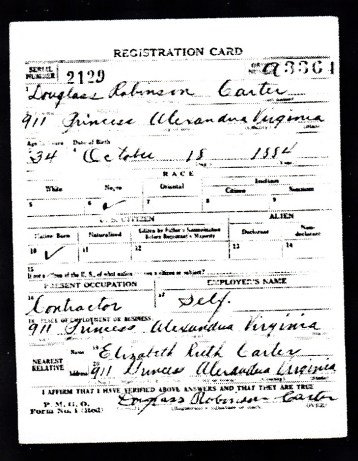 REGISTRATION CARD
SERIAL NUMBER 2129 A3361
Douglass Robinson Carter
911 Princess Alexandria Virginia
34 October 18 1884
RACE
White Negro Oriental Indian
Citizen Noncitizen
5 6 ✓ 7 8 9
U. S. CITIZEN ALIEN
Native Born Naturalized Citizen by Father's Naturalization Before Registrant's Majority Declarant Non-declarant
10 ✓ 11 12 13 14
15
If not a citizen of the U. S., of what nation are you a citizen or subject?
PRESENT OCCUPATION EMPLOYER'S NAME
16 Contractor 17 Self.
18 PLACE OF EMPLOYMENT OR BUSINESS
911 Princess Alexandria Virginia
NEAREST RELATIVE
Name Elizabeth Ruth Carter
Address 911 Princess Alexandria Virginia
I AFFIRM THAT I HAVE VERIFIED ABOVE ANSWERS AND THAT THEY ARE TRUE
P. M. G. O.
Form No. 1 (Red) Douglass Robinson Carter
(Registrant's signature or mark) (OVER)